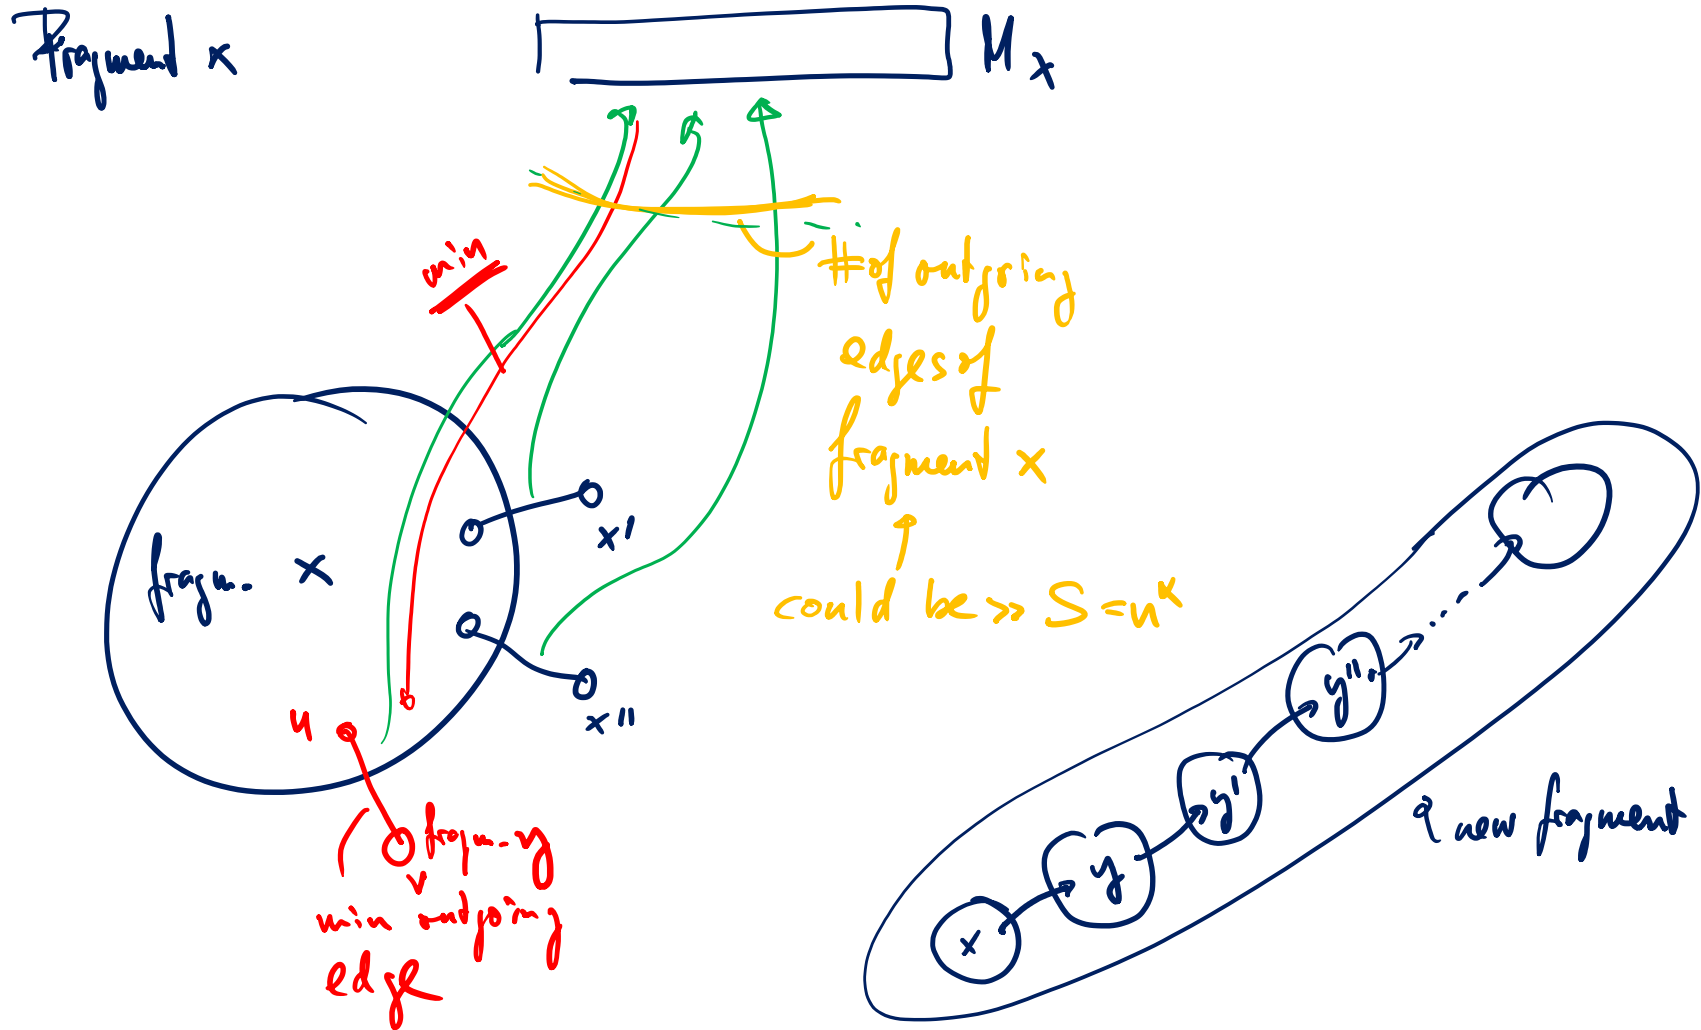 Fragment x
M_x
min
# of outgoing
edges of
fragment x
could be >> S = n^α
x'
x''
fragm. x
u
fragm. y
v
min outgoing
edge
x
y
y'
y''
...
new fragment